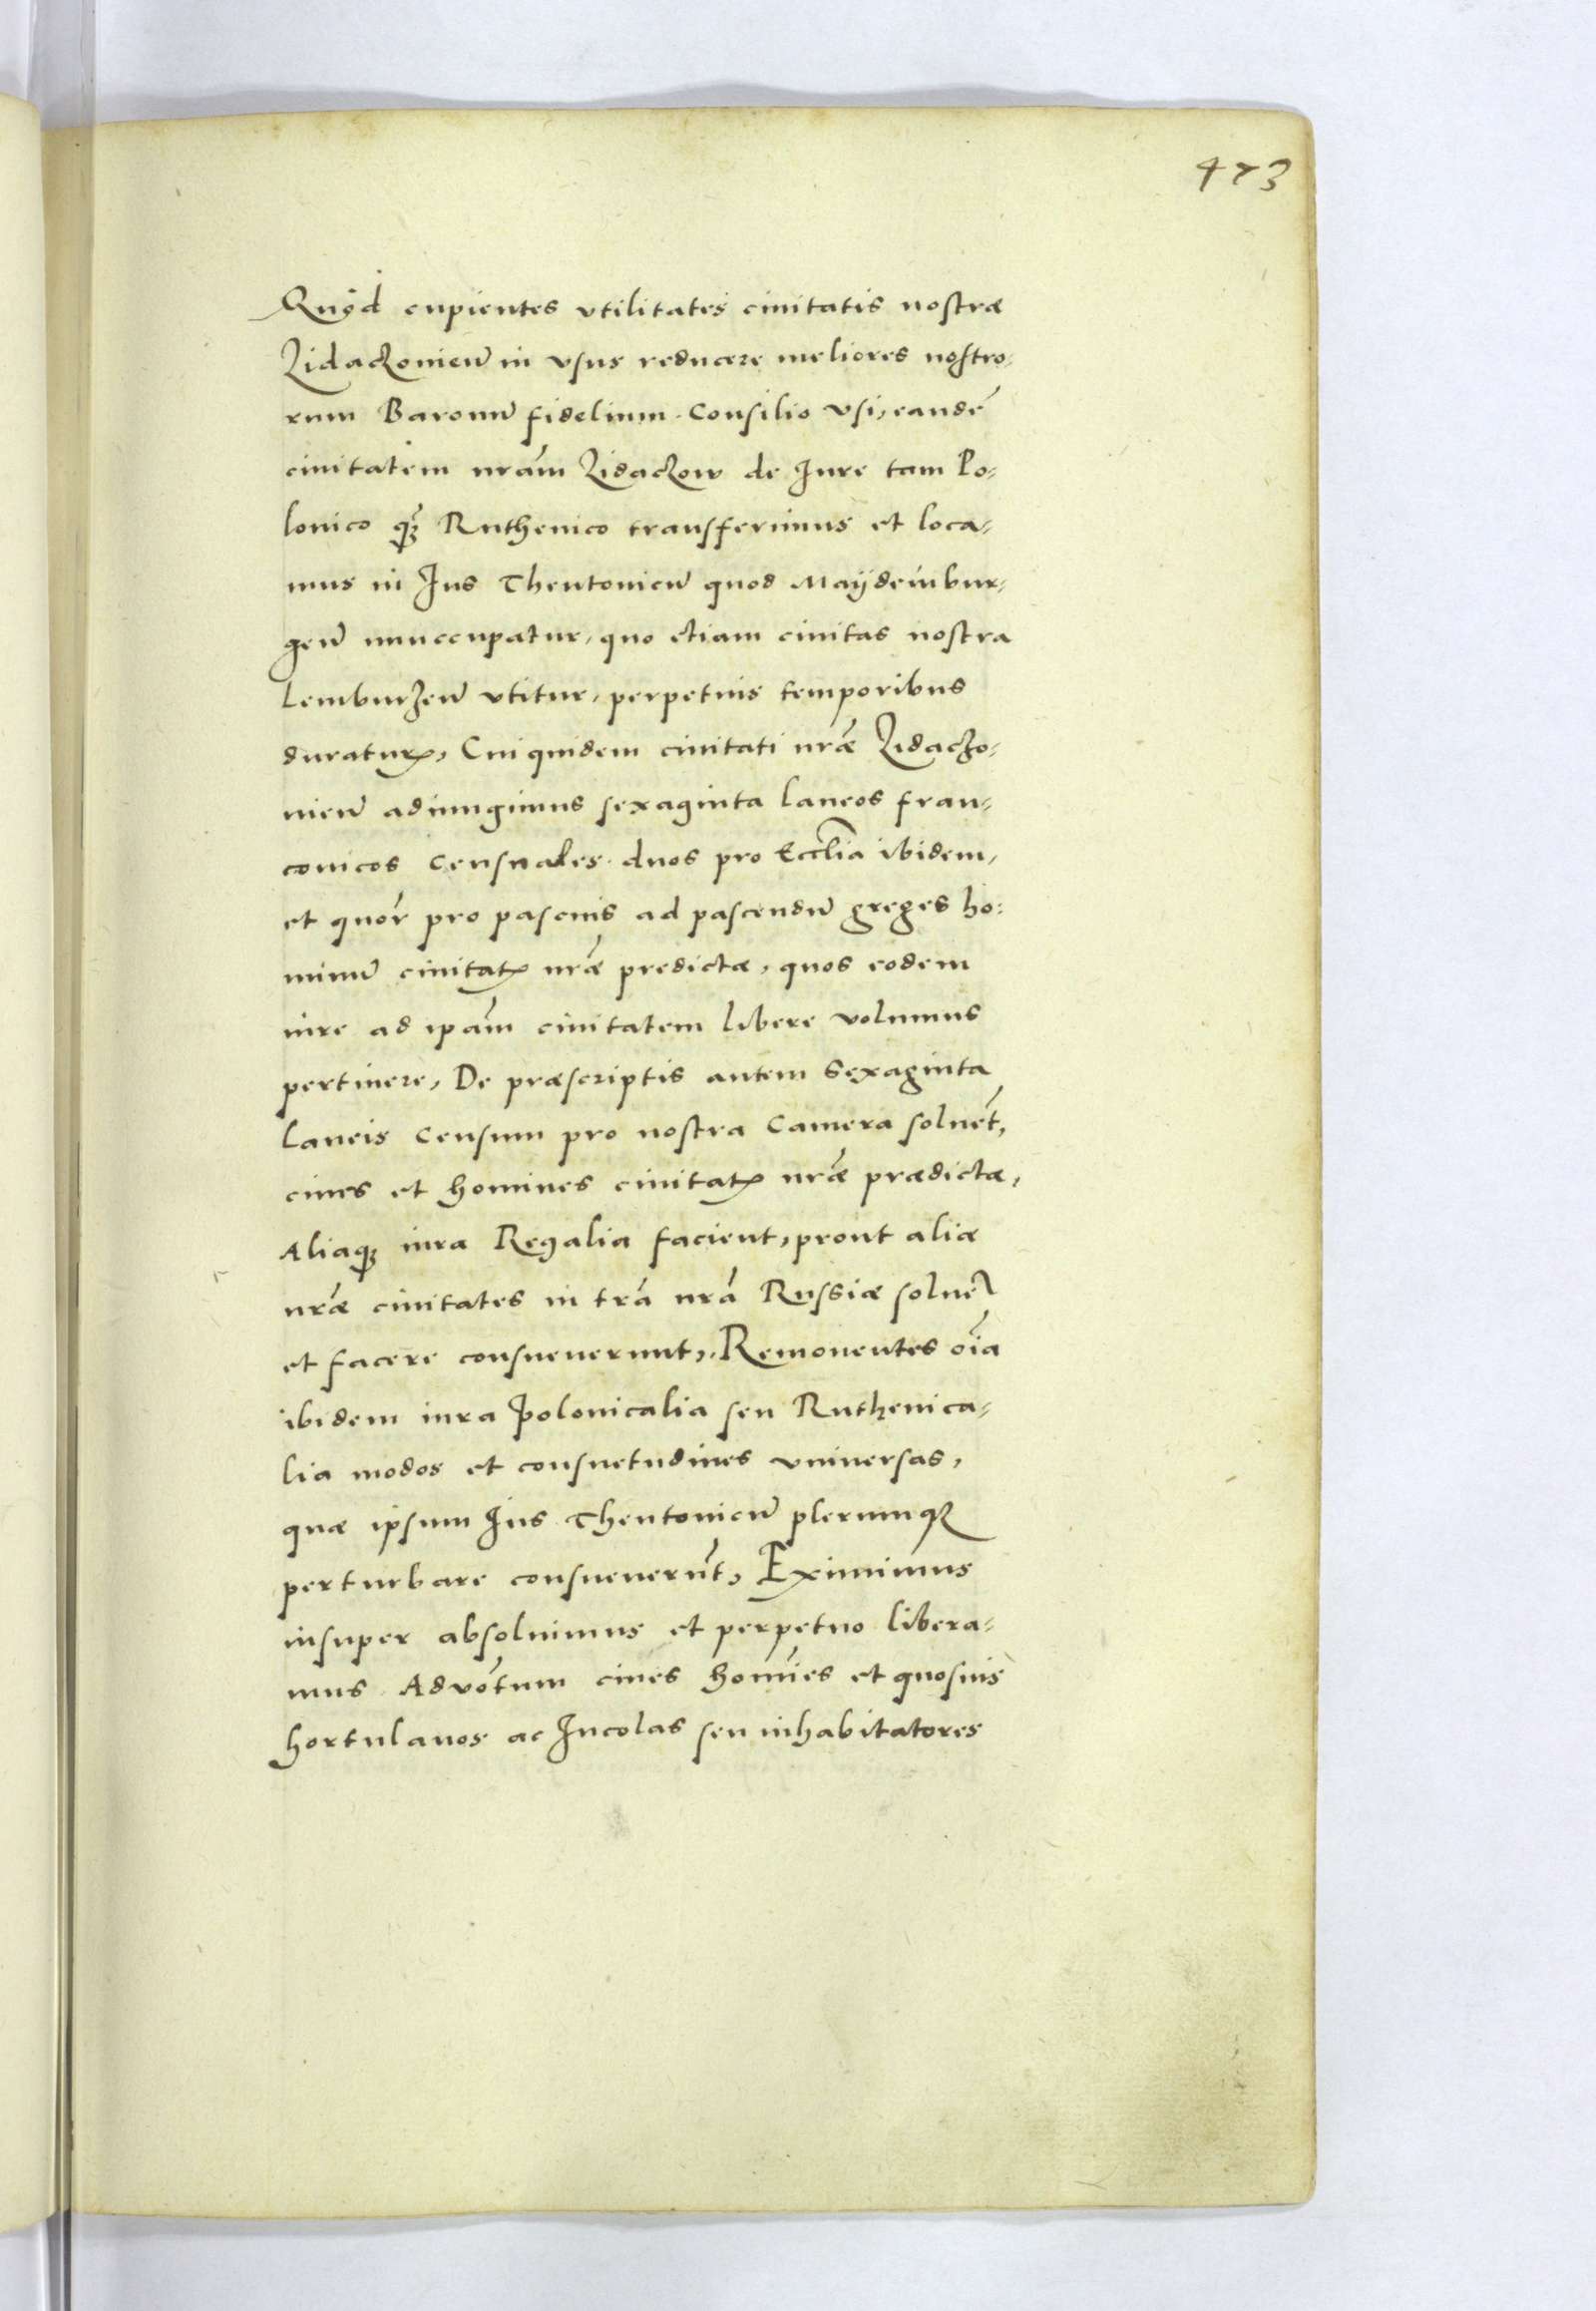 473
Quod cupientes vtilitates ciuitatis nostræ
Zidaczouieñ in vsus reducere meliores nostro-
rum Baronũ fidelium Consilio vsi, eandē
ciuitatem nrãm Zidaczow de Jure tam Po-
lonico q̃ꝫ Ruthenico transferimus et loca-
mus in Jus Theutonicũ quod Maÿdembur-
geñ nuncupatur, quo etiam ciuitas nostra
Lemburgeñ vtitur, perpetuis temporibus
duraturꝭ, Cui quidem ciuitati nrẽ Zidaczo-
uieñ adiungimus sexaginta laneos fran-
conicos censuales duos pro Ecclĩa ibidem,
et quor̃ pro pascuis ad pascendũ greges ho-
minũ ciuitatꝭ nrẽ predictæ, quos eodem
iure ad ipãm ciuitatem libere volumus
pertinere, De præscriptis autem Sexaginta
laneis Censum pro nostra Camera soluẽt,
ciues et homines ciuitatꝭ nrẽ prædictæ,
Aliaqꝫ iura Regalia facient, prout aliæ
nrẽ ciuitates in trã nrã Russiæ soluer̃
et facere consueuerunt, Remouentes oĩa
ibidem iura Polonicalia seu Ruthenica-
lia modos et consuetudines vniuersas,
quæ ipsum Jus Theutonicũ plerumqꝫ
perturbare consueuerũt, Eximimus
insuper absoluimus et perpetuo libera-
mus Aduõtum ciues homĩes et quosuis
hortulanos ac Incolas seu inhabitatores